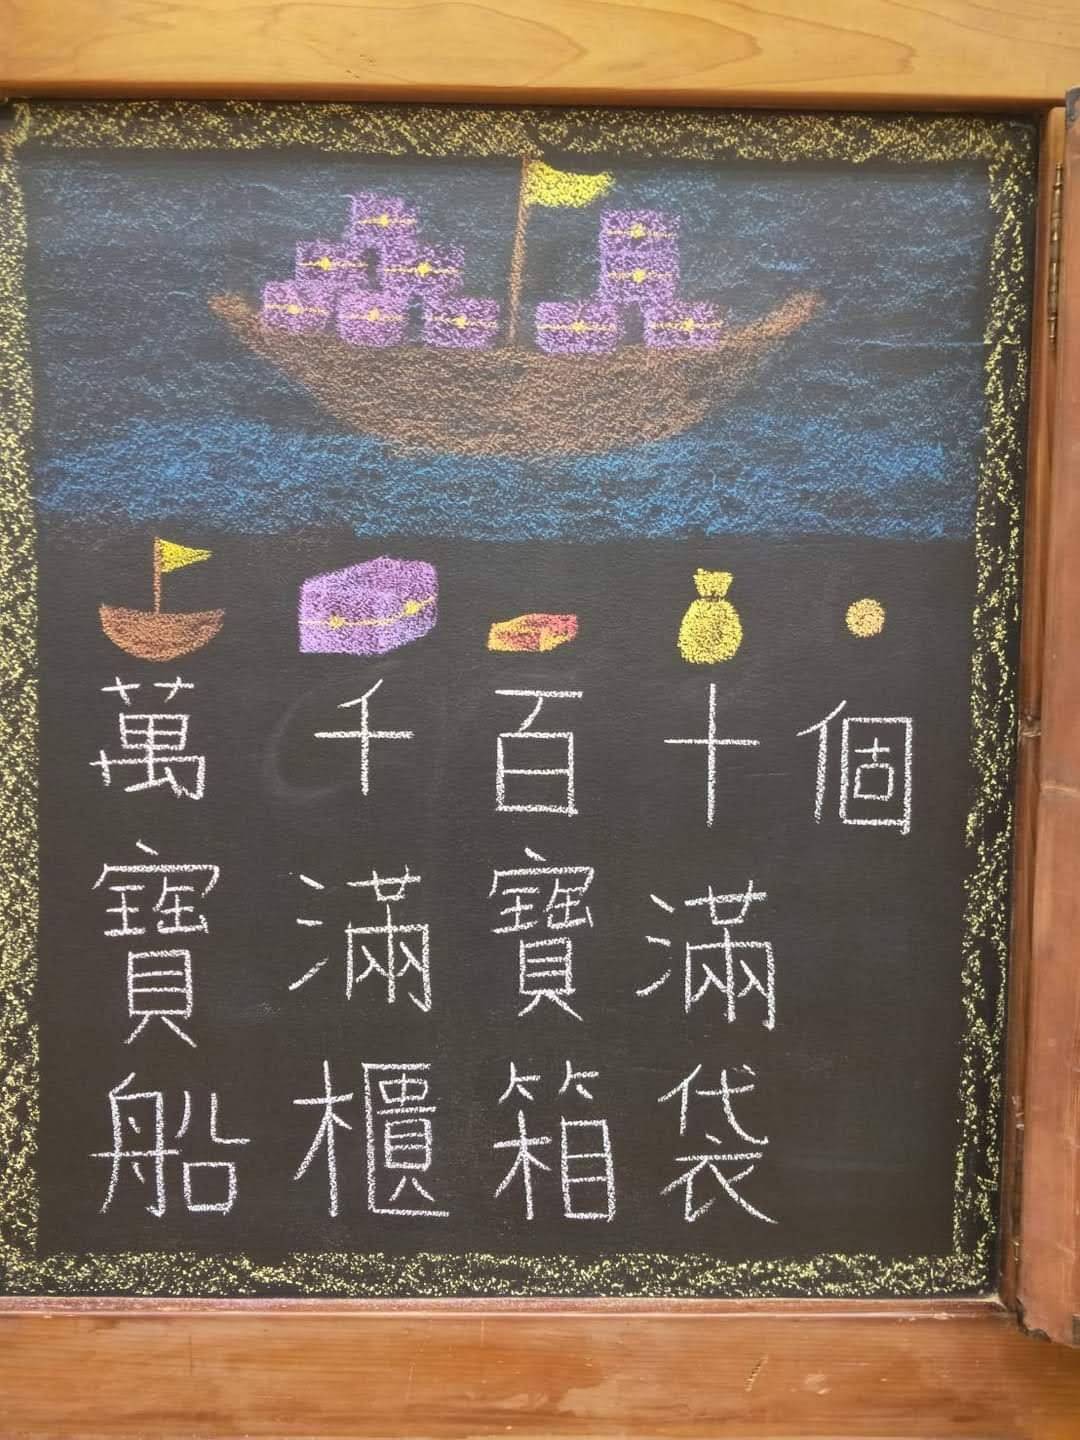 個
十滿袋
百寶箱
千滿櫃
萬寶船